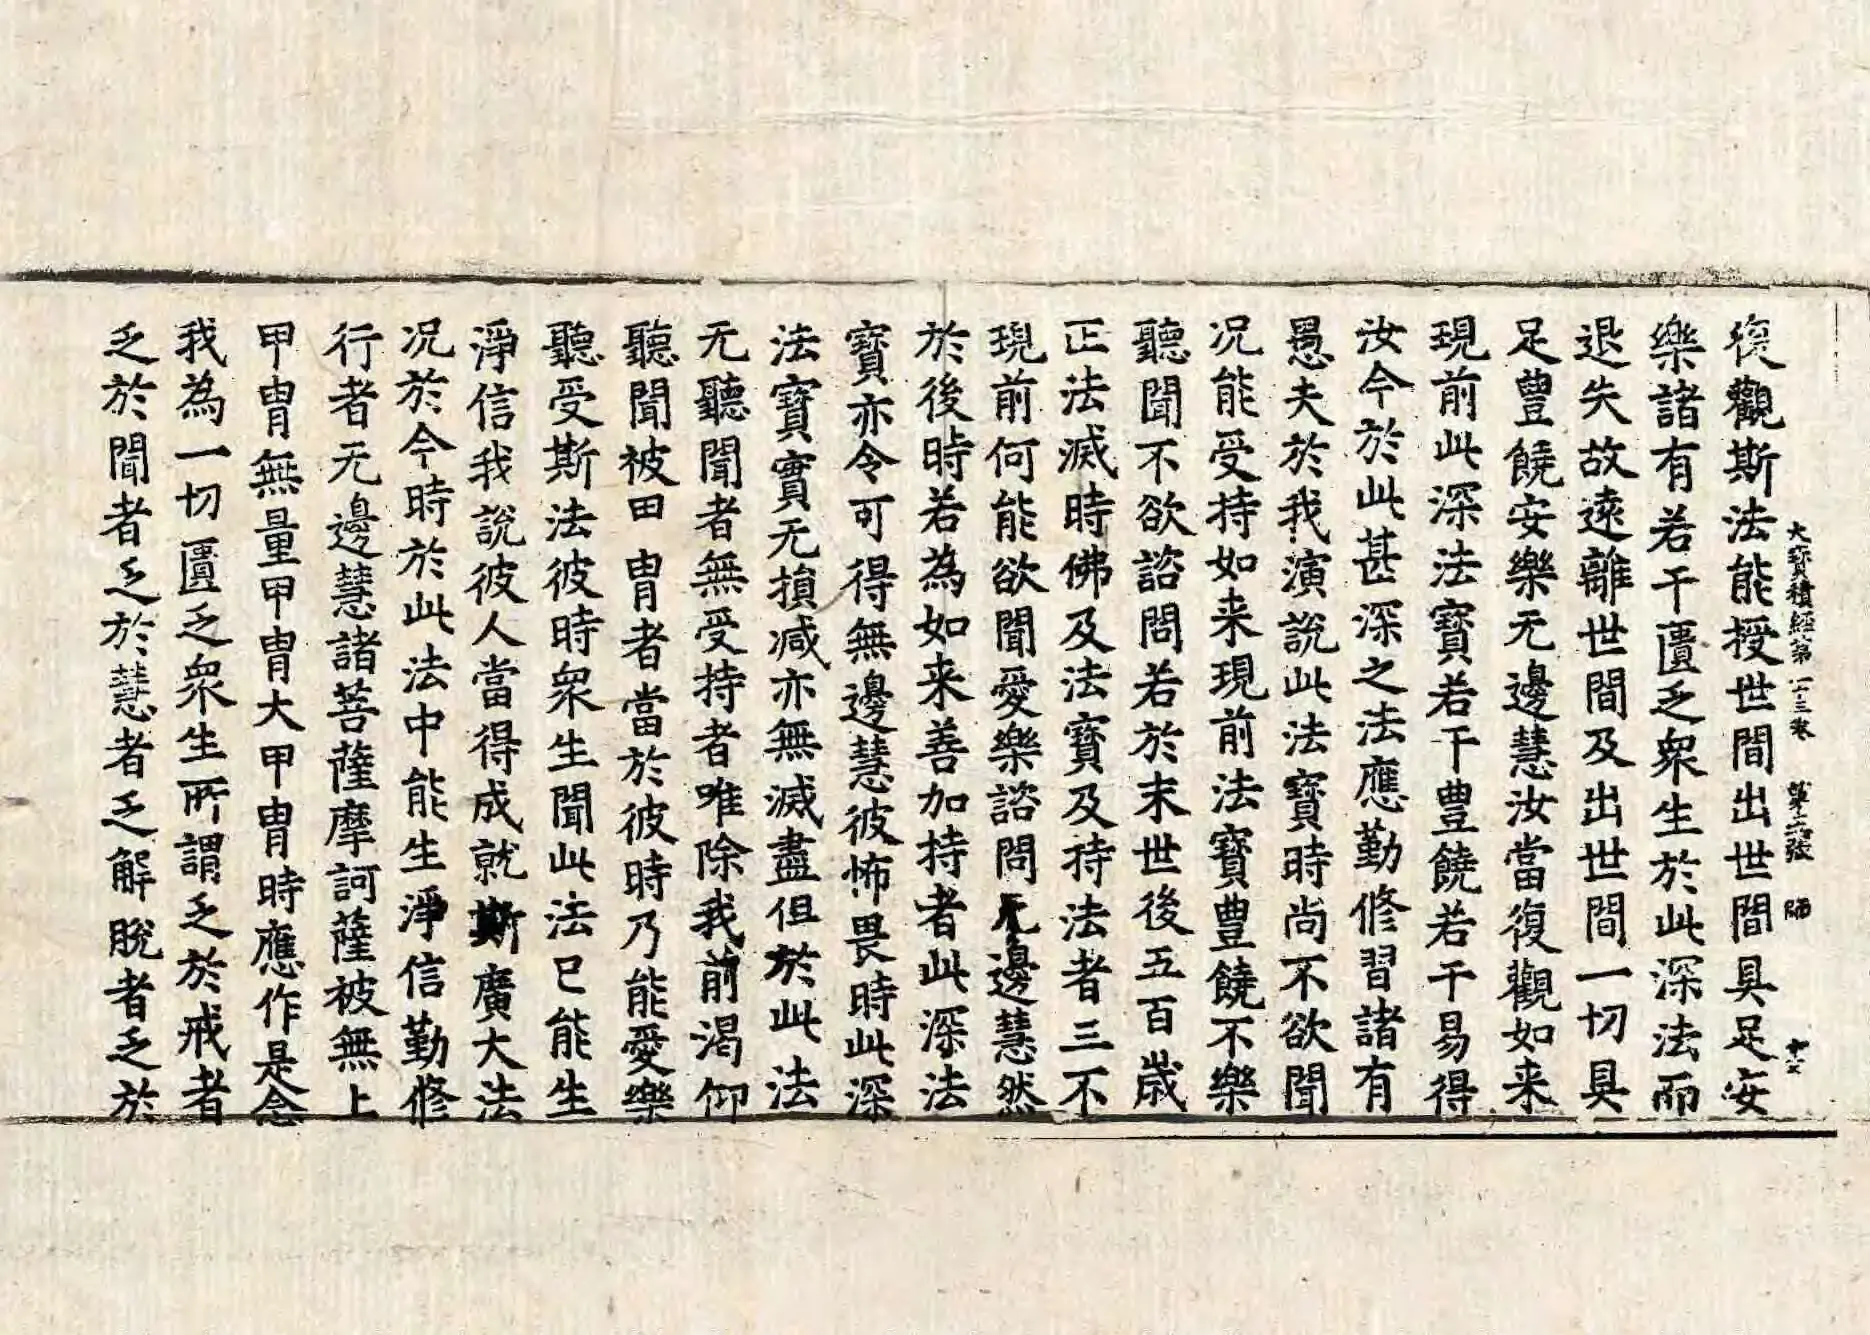 大寶積經第 十三卷 第 張 師
復觀斯法能授世間出世間具足安
樂諸有若干匱乏衆生於此深法而
退失故遠離世間及出世間一切具
足豊饒安樂无邊慧汝當復觀如来
現前此深法寶若干豊饒若干易得
汝今於此甚深之法應勤修習諸有
愚夫於我演說此法寶時尚不欲聞
况能受持如来現前法寶豊饒不樂
聽聞不欲諮問若於末世後五百歲
正法滅時佛及法寶及持法者三不
現前何能欲聞愛樂諮問无邊慧然
於後時若為如来善加持者此深法
寶亦令可得無邊慧彼怖畏時此深
法寶實无損减亦無滅盡但於此法
无聽聞者無受持者唯除我前渴仰
聽聞被田胄者當於彼時乃能愛樂
聽受斯法彼時衆生聞此法已能生
淨信我說彼人當得成就斯廣大法
况於今時於此法中能生淨信勤修
行者无邊慧諸菩薩摩訶薩被無上
甲胄無量甲胄大甲胄時應作是念
我為一切匱乏衆生所謂乏於戒者
乏於聞者乏於慧者乏解脫者乏於